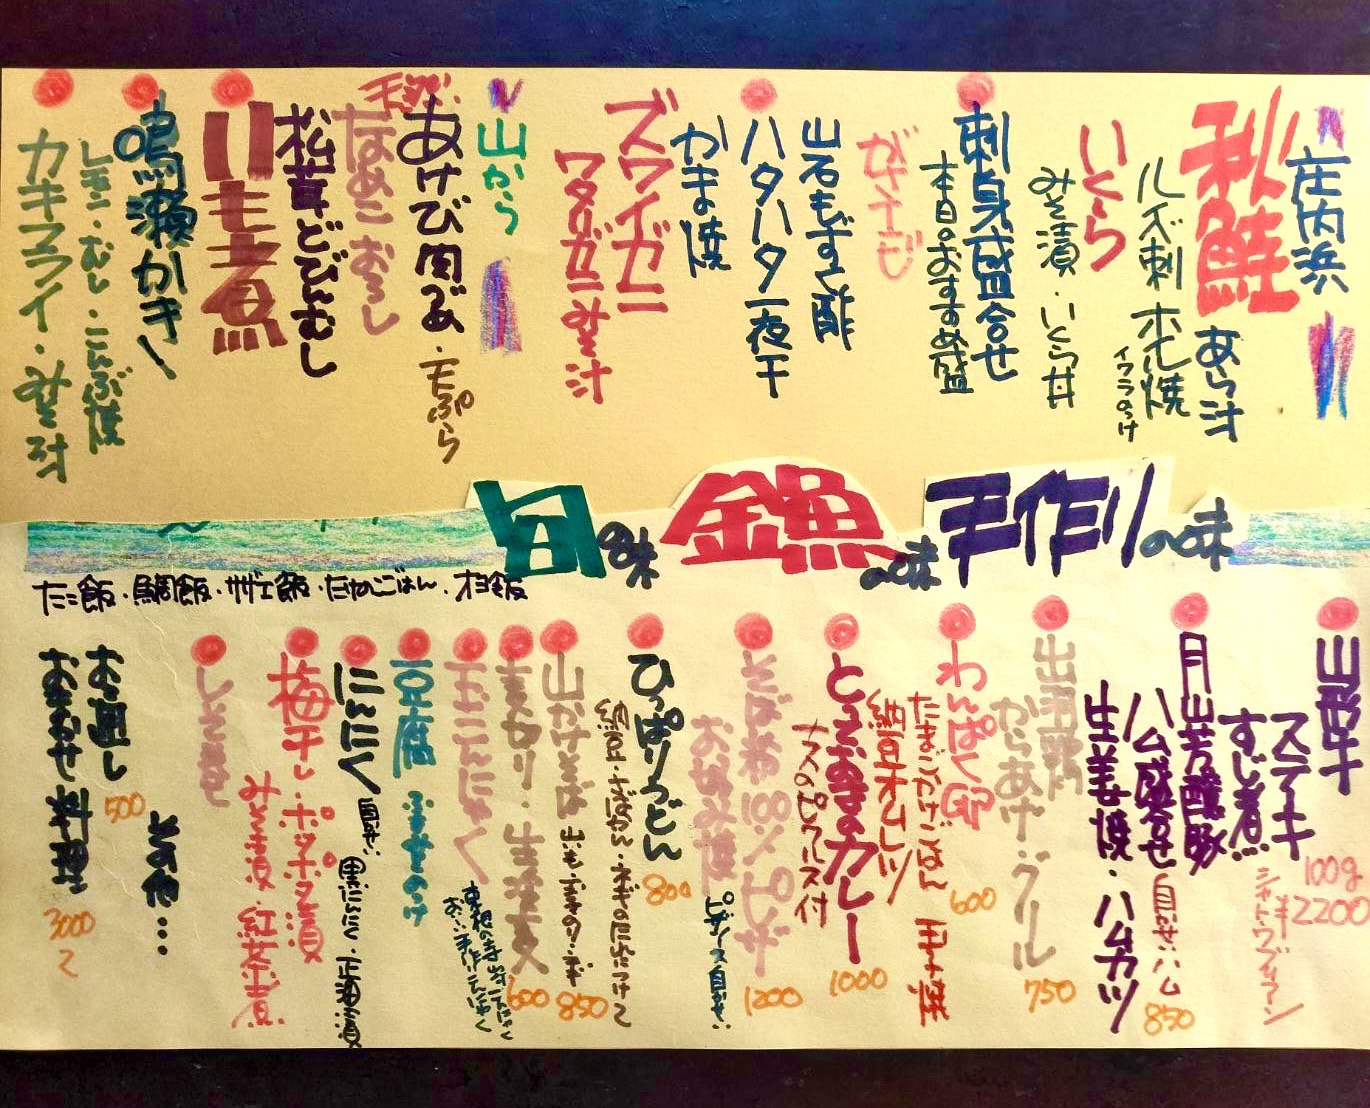 庄内浜
秋鮭
あら汁
ルイベ刺 ホイル焼
イクラのっけ
いくら
みそ漬・いくら丼
刺身盛合せ
本日のおすすめ盛
がサエビ
岩もずく酢
ハタハタ一夜干
かま焼
ズワイガニ
ワタリガニみそ汁
山から
あけび肉みそ・天ぷら
天然
なめこおろし
松茸どびんむし
いも煮
鳴瀬かき
レモン・むし・こんぶ焼
カキフライ・みそ汁
旬の味
鮮魚の味
手作りの味
たこ飯・鯛飯・サザエ飯・たけのこごはん・オヨ飯
山形牛
ステーキ
100g ¥2200
シャトウブリアン
すじ煮
月山芳醸豚
ハム盛合せ 自家製ハム 850
生姜焼・ハムカツ
出羽鶏
からあげ・グリル
750
わんぱく卵
600
たまごかけごはん 玉子焼
納豆オムレツ
とっておきのカレー
1000
ナスのピクルス付
そば粉100%ピザ
1200
お好み焼
ピザソース自家製
ひっぱりうどん
800
納豆・さばかん・ネギのたれにつけて
山かけそば
850
麦切り・生蕎麦
600
玉こんにゃく
豆腐
にんにく 自家製
黒にんにく・正油漬
梅干し・ポタポタ漬
みそ漬・紅茶煮
しそ巻
その他…
お通し
500
おまかせ料理
3000〜